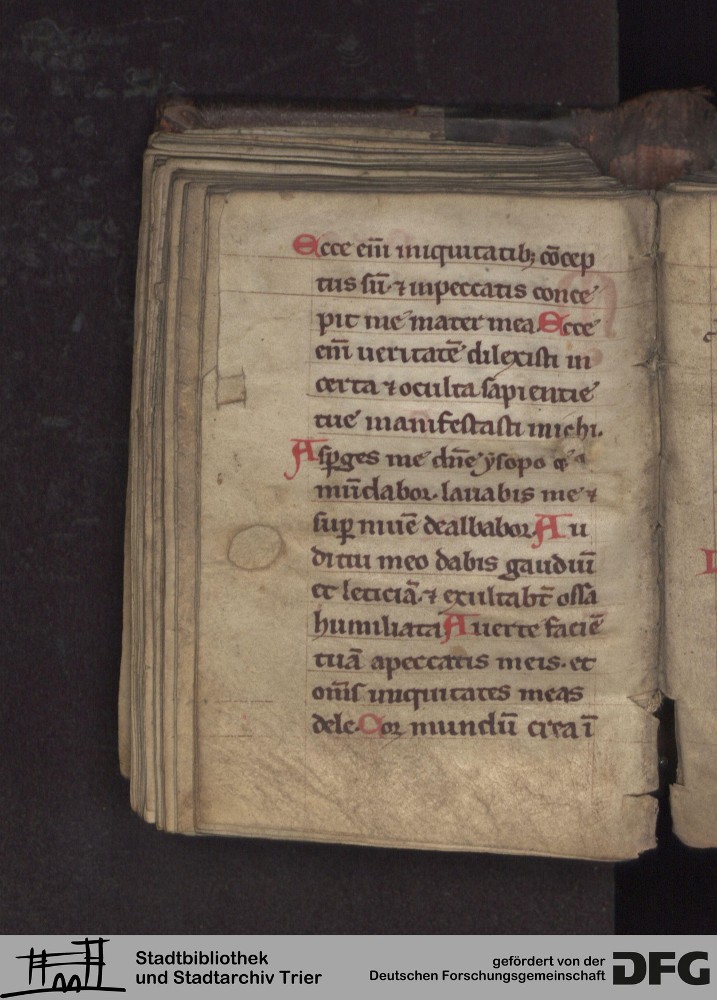 Ecce em̄ iniquitatib; c̄ōcep
tus sū· ⁊ inpeccatis conce
pit me mater mea Ecce
em̄ ueritatē dilexisti in
certa ⁊ oculta sapientie
tue manifestasti michi.
Asꝑges me dn̄e ẏsopo ⁊
mūdabor· lauabis me ⁊
suꝑ niuē dealbabor Au
ditui meo dabis gaudiū
et leticiā· ⁊ exultabt̄ ossa
humiliata Auerte faciē
tuā apeccatis meis· et
om̄s iniquitates meas
dele· Cor mundū crea ī
Stadtbibliothek
und Stadtarchiv Trier
gefördert von der
Deutschen Forschungsgemeinschaft DFG